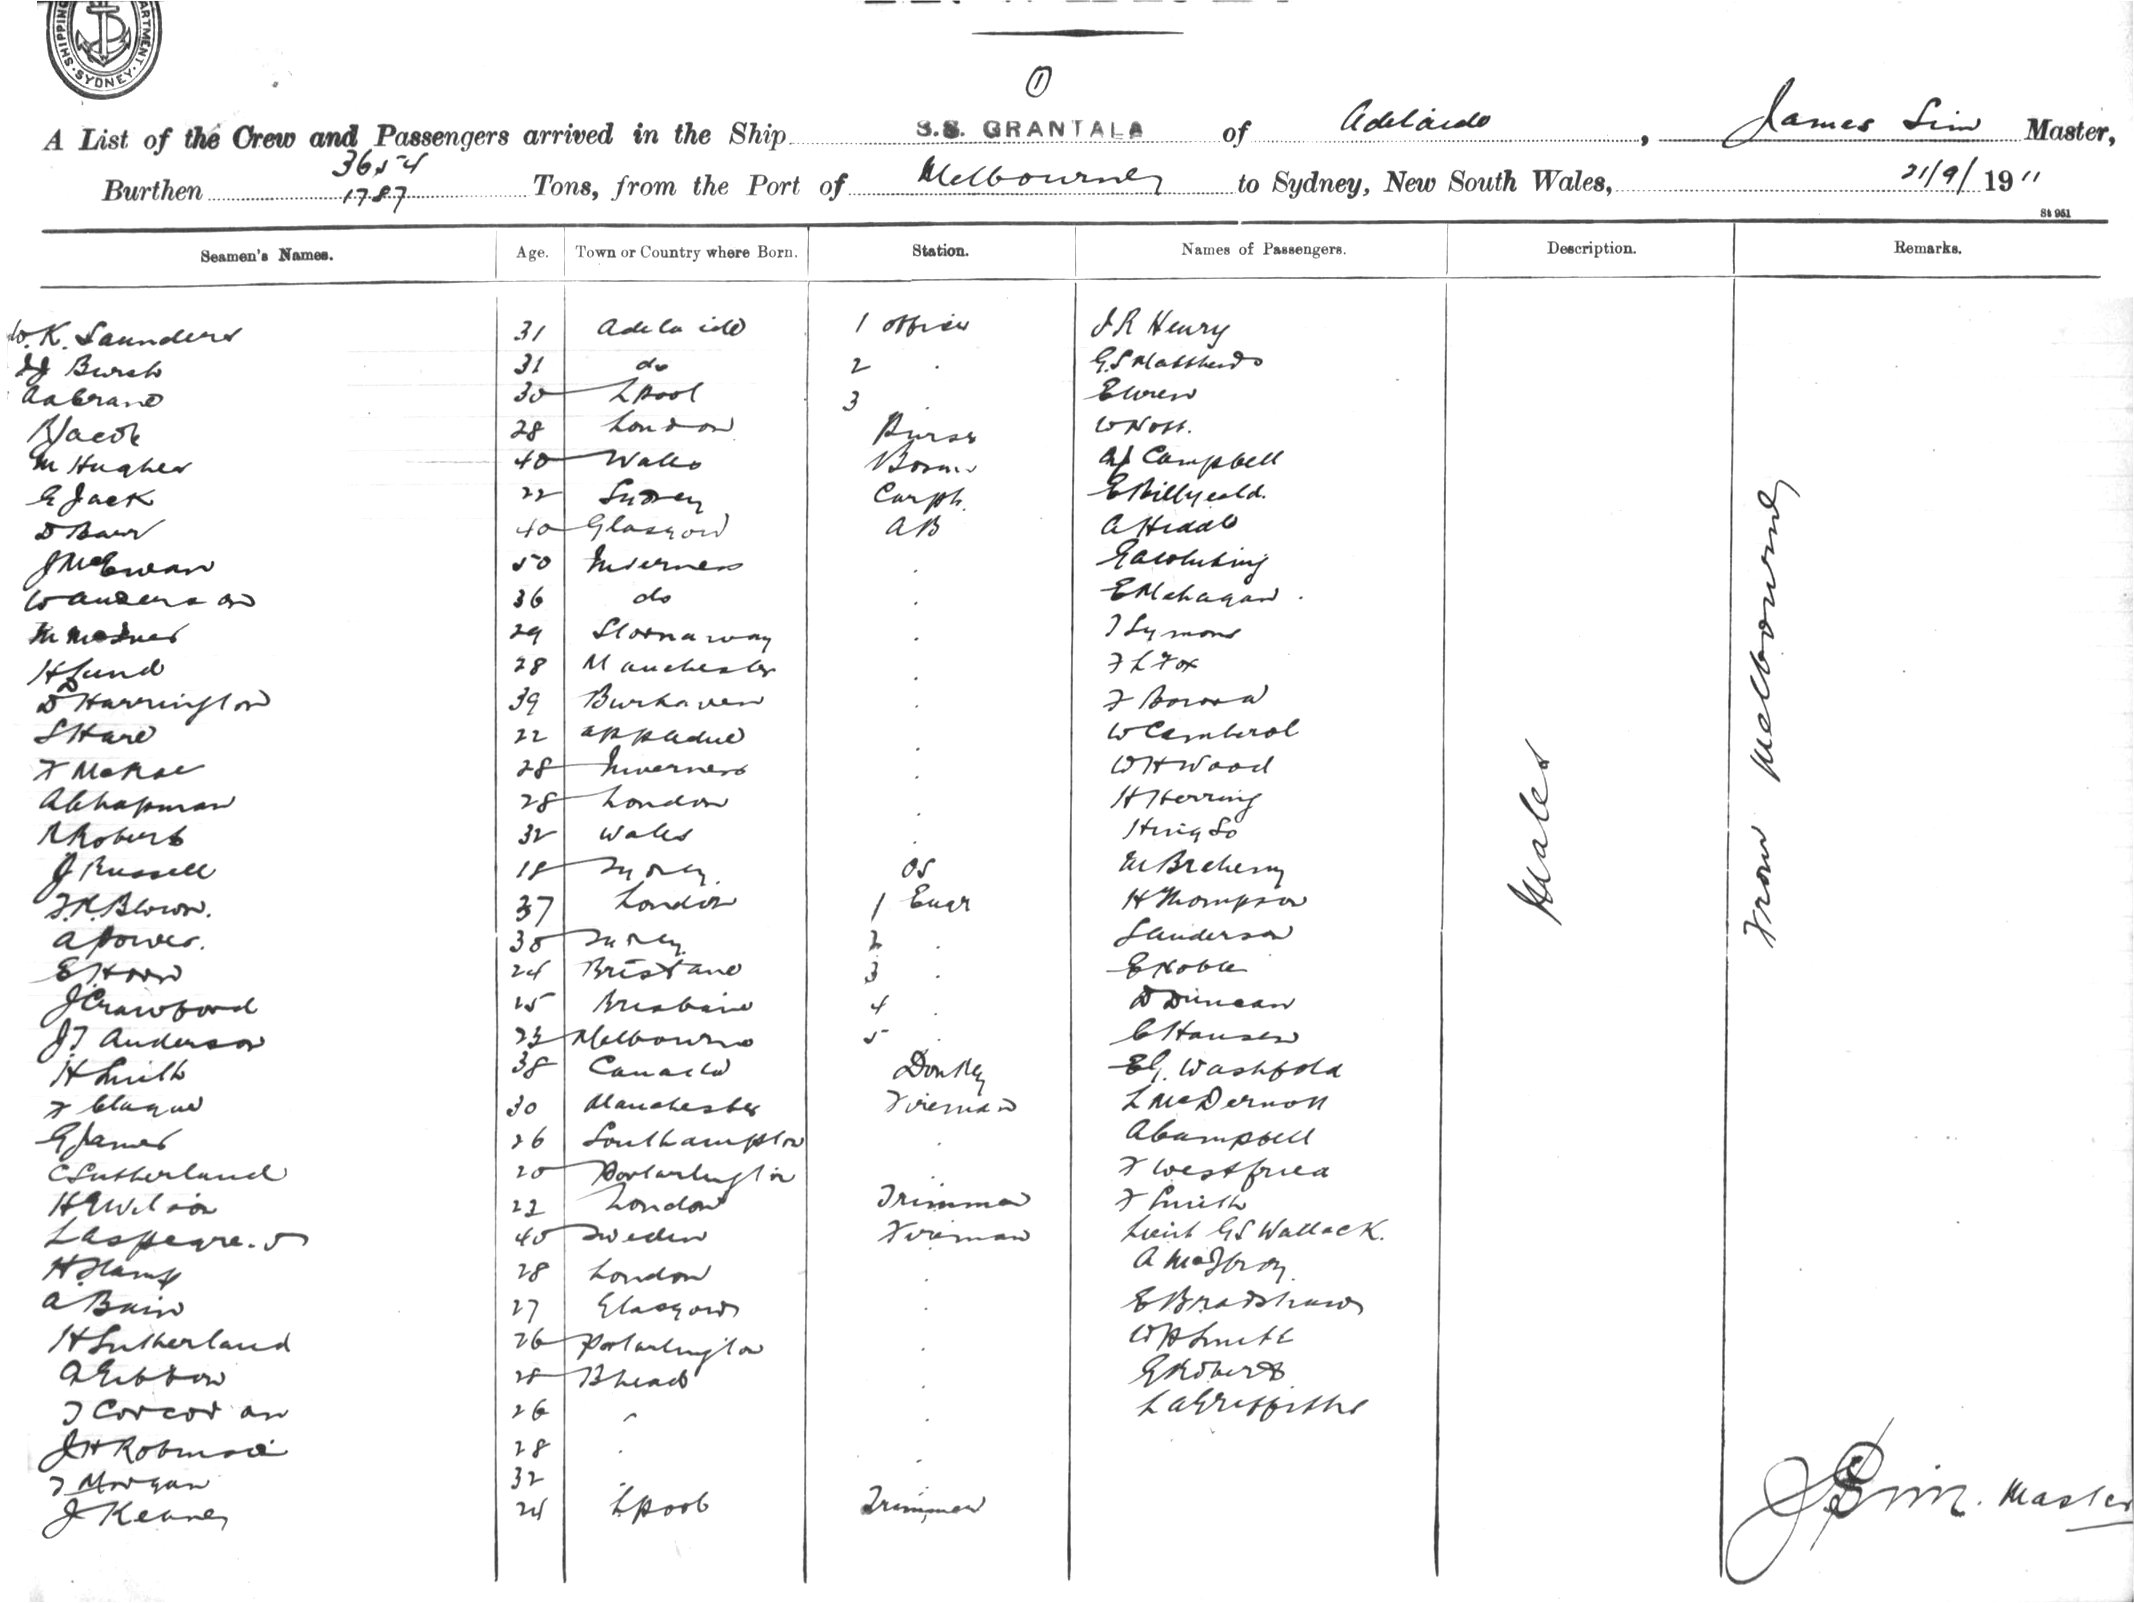 SHIPPING DEPARTMENT SYDNEY
1
A List of the Crew and Passengers arrived in the Ship S.S. GRANTALA of Adelaide, James Sim Master,
3654
Burthen 1787 Tons, from the Port of Melbourne to Sydney, New South Wales, 21/9/1911
St 951
Seamen's Names. Age. Town or Country where Born. Station. Names of Passengers. Description. Remarks.
W. K. Saunders 31 Adelaide 1 officer J R Henry
31 do 2 . G S Matthews
30 Lpool 3 . E Wren
R Jacob 28 London Purser W Nott.
M Hughes 40 Wales Bosun Campbell
G Jack 22 Sydney Carp.
D Barr 40 Glasgow AB A
J McEwan 50 Inverness .
W Anderson 36 do .
29 Stornaway . T Symons
H Lund 28 Manchester . F L Fox
D Harrington 39 .
S Hare 22 . W
F McRae 28 Inverness . W H Wood
A Chapman 28 London . H Herring
R Roberts 32 Wales .
J Russell 18 Sydney. OS
Brown. 37 London 1 Engr H Thompson
A Power. 30 Sydney 2 . Sanderson
24 3 . E Noble
J Crawford 25 Brisbane 4 . D Duncan
J T Anderson 23 Melbourne 5 . C Hansen
H Smith 38 Canada Donkey E G. Washfold
F Clague 30 Manchester Fireman L McDermott
G James 26 Southampton . A Campbell
C Sutherland 20 Portarlington F
H E Wilson 23 London Trimmer F Smith
40 Sweden Fireman Lieut G S Wallack.
28 London . A
A Bain 27 Glasgow . E Bradshaw
H Sutherland 26 Portarlington . W H Smith
A Gibbon 28 Bhead . G Roberts
T Corcoran 26 " . L A Griffiths
J H Robinson 28 . .
T Morgan 32
J Keaney 24 Lpool Trimmer
Males
From Melbourne
J Sim. Master